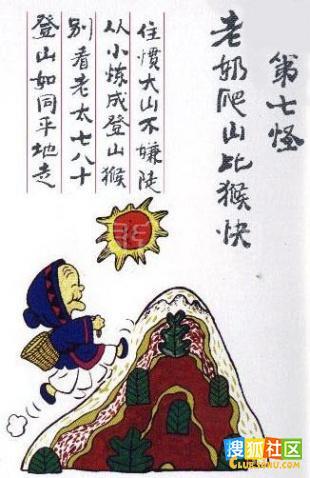 第七怪
老奶爬山比猴快
住惯大山不嫌陡
从小炼成登山猴
别看老太七八十
登山如同平地走
搜狐社区
CLUB.SOHU.COM